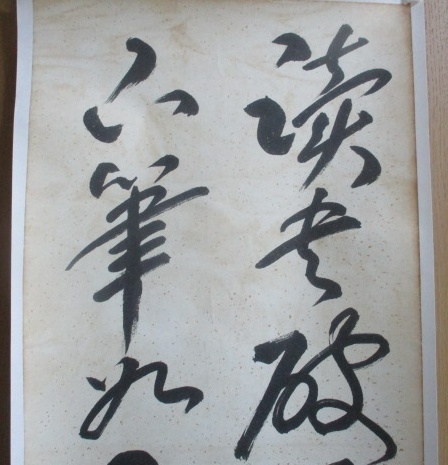 读书破
下筆如